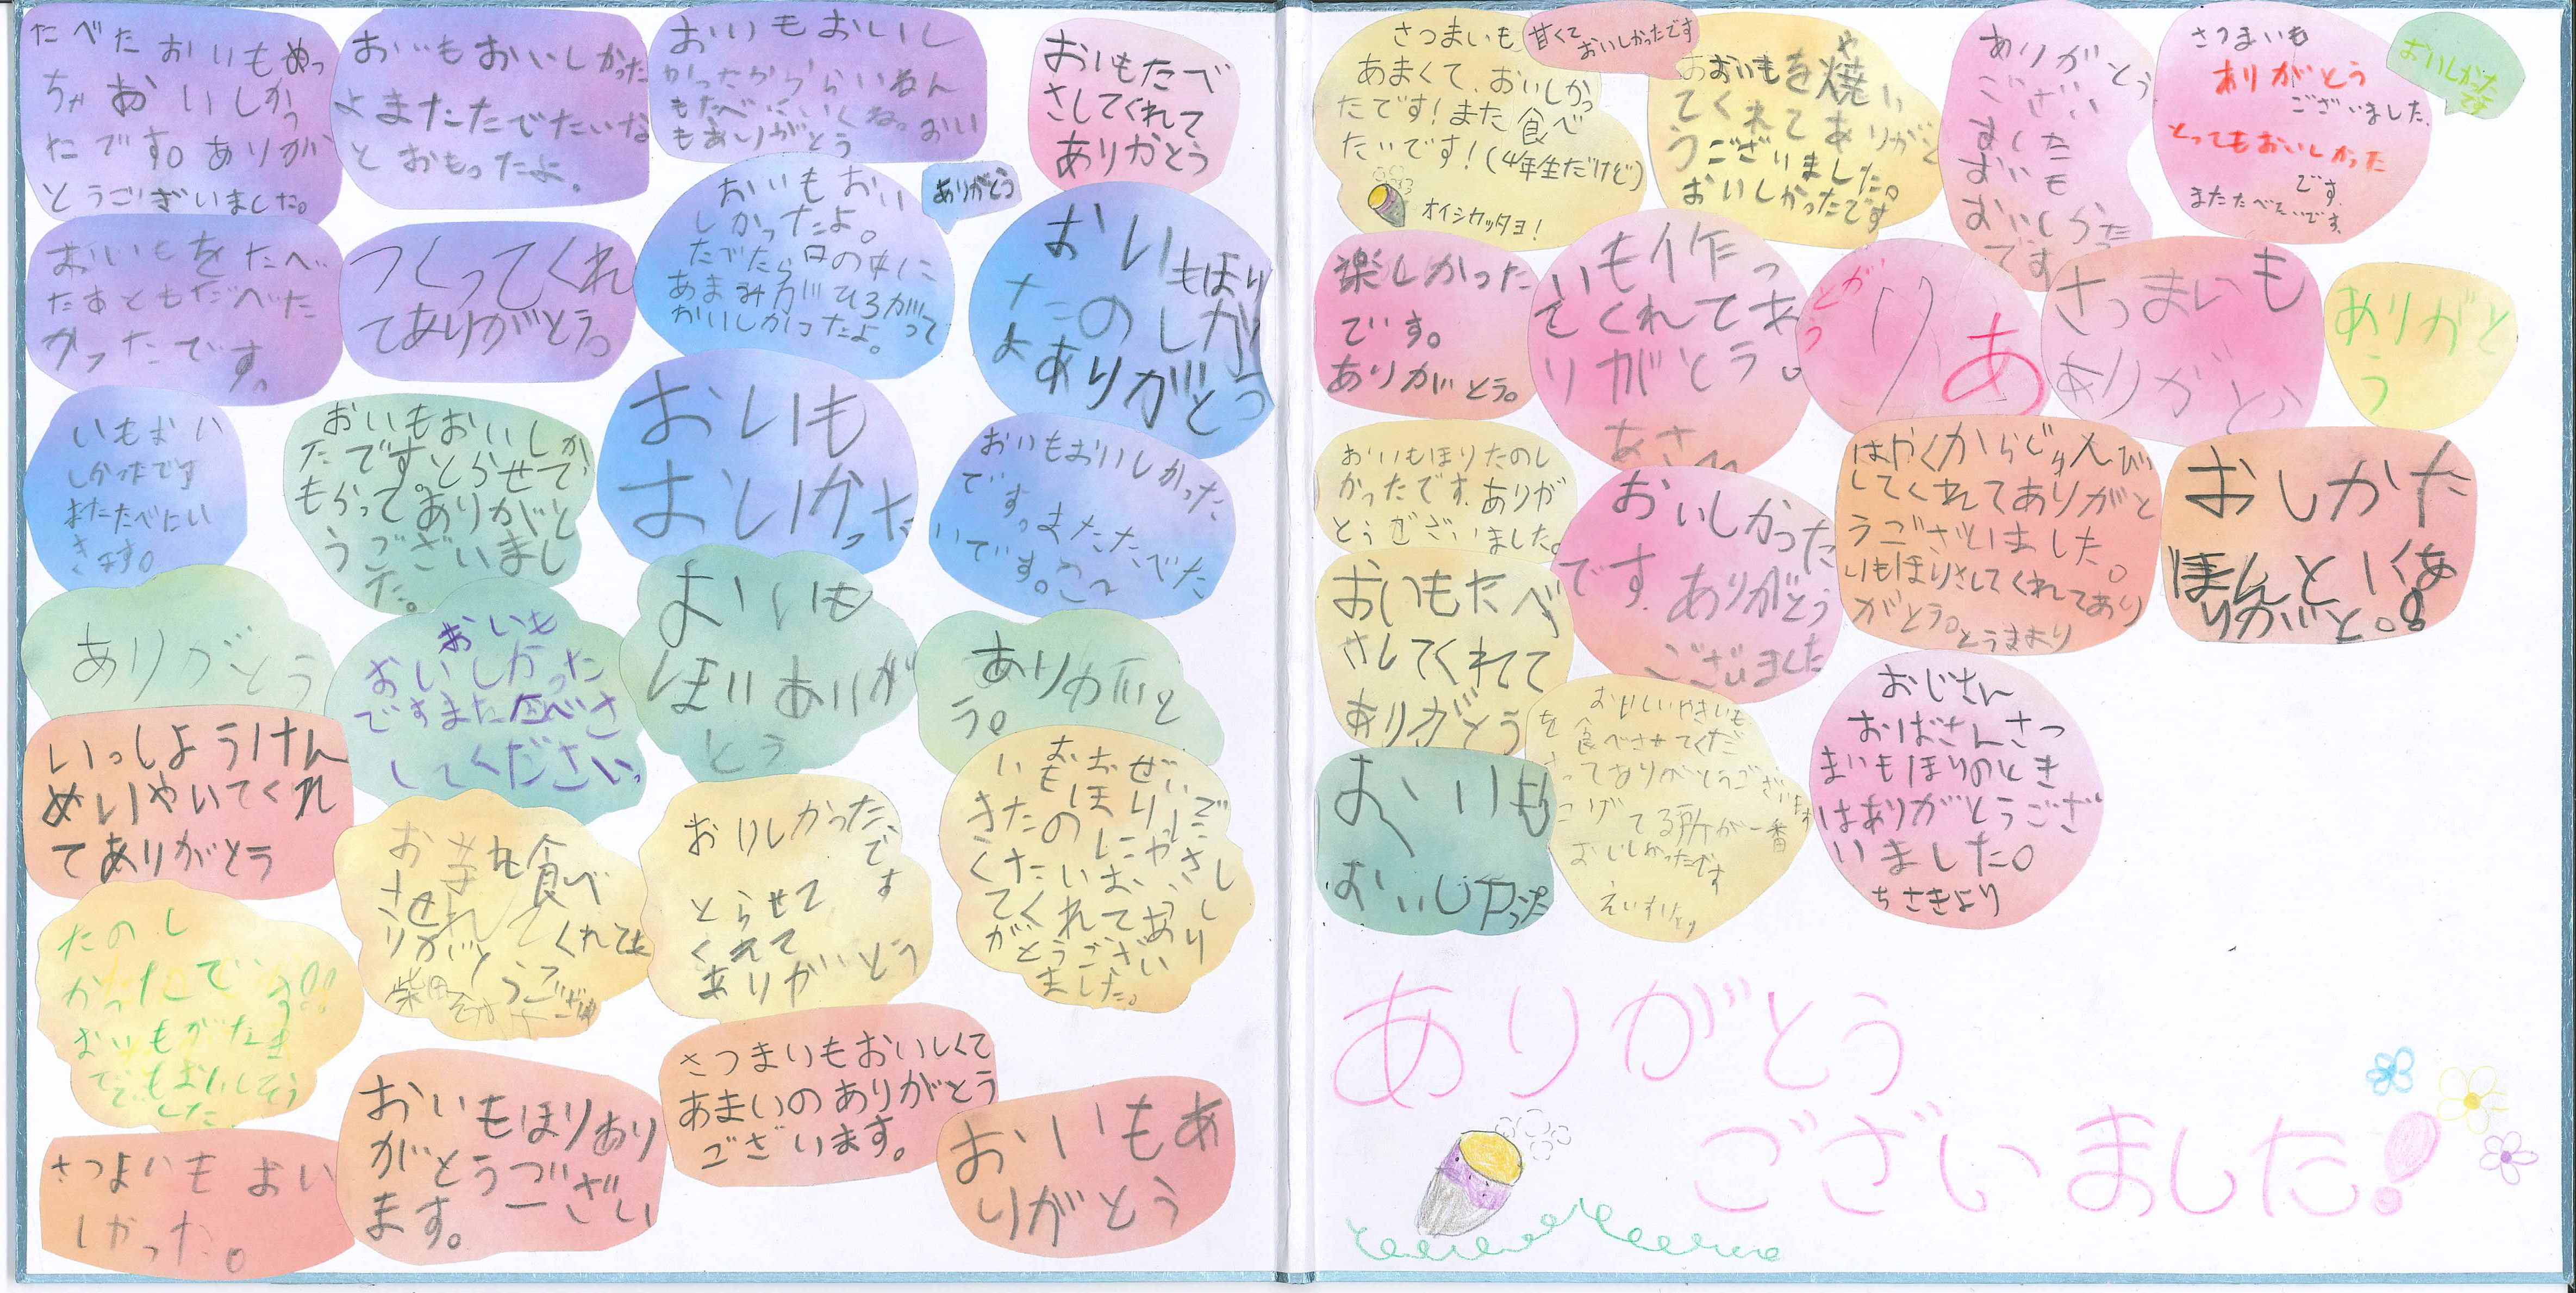 たべたおいもめっ
ちゃおいしかっ
たです。ありが
とうございました。
おいもおいしかった
よまたたでたいな
とおもったよ。
おいもおいし
かったかららいねん
もたべ
もありがとう
おいもたべ
さしてくれて
ありがとう
おいもをたべ
たあともたべた
かったです。
つくってくれ
てありがとう。
おいもおい
しかったよ。
たでたら口の中に
あまみがひろがって
おいしかったよ。
ありがとう
おいもほり
たのしかった
よありがとう
いもおい
しかったです
またたべにい
きます。
おいもおいしかっ
たです。とらせて
もらってありがと
うございまし
た。
おいも
おいかった
おいもおいしかった
です。またたべた
いです。
ありがとう
おいも
おいしかった
ですまた食べさ
してください。
おいも
ほりありが
とう
ありがと
う。
いっしようけん
めいやいてくれ
てありがとう
お芋を食べ
させてくれてあ
りがとうござ
柴田
おいしかった
です
とらせて
くれて
ありがとう
おおぜいで
いもほりに
きたのにやさし
くたいおうし
てくれてあり
がとうござい
ました。
たのし
かったです!!
おいもがたま
でもおいしそう
でした
さつまいもおい
しかった。
おいもほりあり
がとうござい
ます。
さつまいもおいしくて
あまいのありがとう
ございます。
おいもあ
りがとう
さつまいも
あまくて、おいしかっ
たです!また食べ
たいです!(4年生だけど)
オイシカッタヨ!
甘くて
おいしかったです
おいもを焼い
てくれてありがと
うございました。
おいしかったです
ありがとう
ござい
ました
おいも
おいしかった
です
さつまいも
ありがとう
ございました。
とってもおいしかった
です。
またたべたいです。
おいしかった
です
楽しかった
です。
ありがとう。
いも作っ
てくれてあ
りがとう。
あさひ
ありがとう
さつまいも
ありがとう
ありがと
う
おいもほりたのし
かったです。ありが
とうございました。
おいしかった
です。ありがとう
ございました
はやくからじゅんび
してくれてありがと
うございました。
いもほりさしてくれてあり
がとう。とうまより
おしかた
ほんとーにあ
りがと。
おいもたべ
さしてくれてて
ありがとう
おいしいやきいも
を食べさせてくださ
ってありがとうござい
こげてる所が一番
おいしかったです
おじさん
おばさんさつ
まいもほりのとき
はありがとうござ
いました。
ちさきより
おいも
おいしかった
ありがとう
ございました!